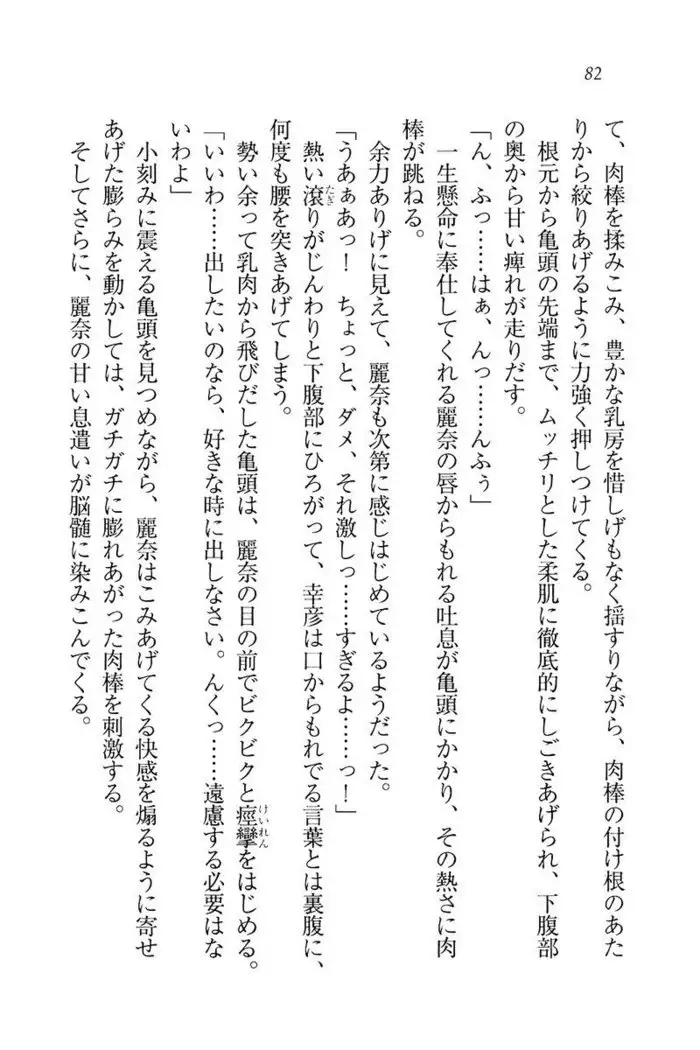 82
て、肉棒を揉みこみ、豊かな乳房を惜しげもなく揺すりながら、肉棒の付け根のあた
りから絞りあげるように力強く押しつけてくる。
根元から亀頭の先端まで、ムッチリとした柔肌に徹底的にしごきあげられ、下腹部
の奥から甘い痺れが走りだす。
「ん、ふっ……はぁ、んっ……んふぅ」
一生懸命に奉仕してくれる麗奈の唇からもれる吐息が亀頭にかかり、その熱さに肉
棒が跳ねる。
余力ありげに見えて、麗奈も次第に感じはじめているようだった。
「うあぁあっ！　ちょっと、ダメ、それ激しっ……すぎるよ……っ！」
熱い滾りがじんわりと下腹部にひろがって、幸彦は口からもれでる言葉とは裏腹に、
何度も腰を突きあげてしまう。
勢い余って乳肉から飛びだした亀頭は、麗奈の目の前でビクビクと痙攣をはじめる。
「いいわ……出したいのなら、好きな時に出しなさい。んくっ……遠慮する必要はな
いわよ」
小刻みに震える亀頭を見つめながら、麗奈はこみあげてくる快感を煽るように寄せ
あげた膨らみを動かしては、ガチガチに膨れあがった肉棒を刺激する。
そしてさらに、麗奈の甘い息遣いが脳髄に染みこんでくる。